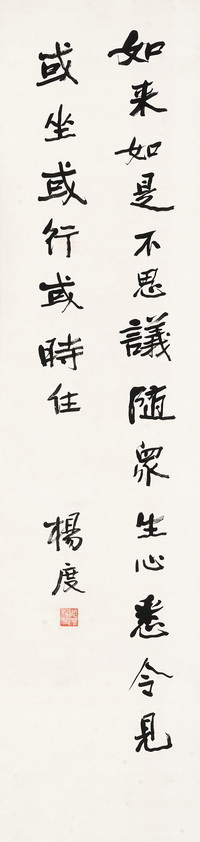 如来如是不思議隨眾生心悉令見
或坐或行或時住
楊度